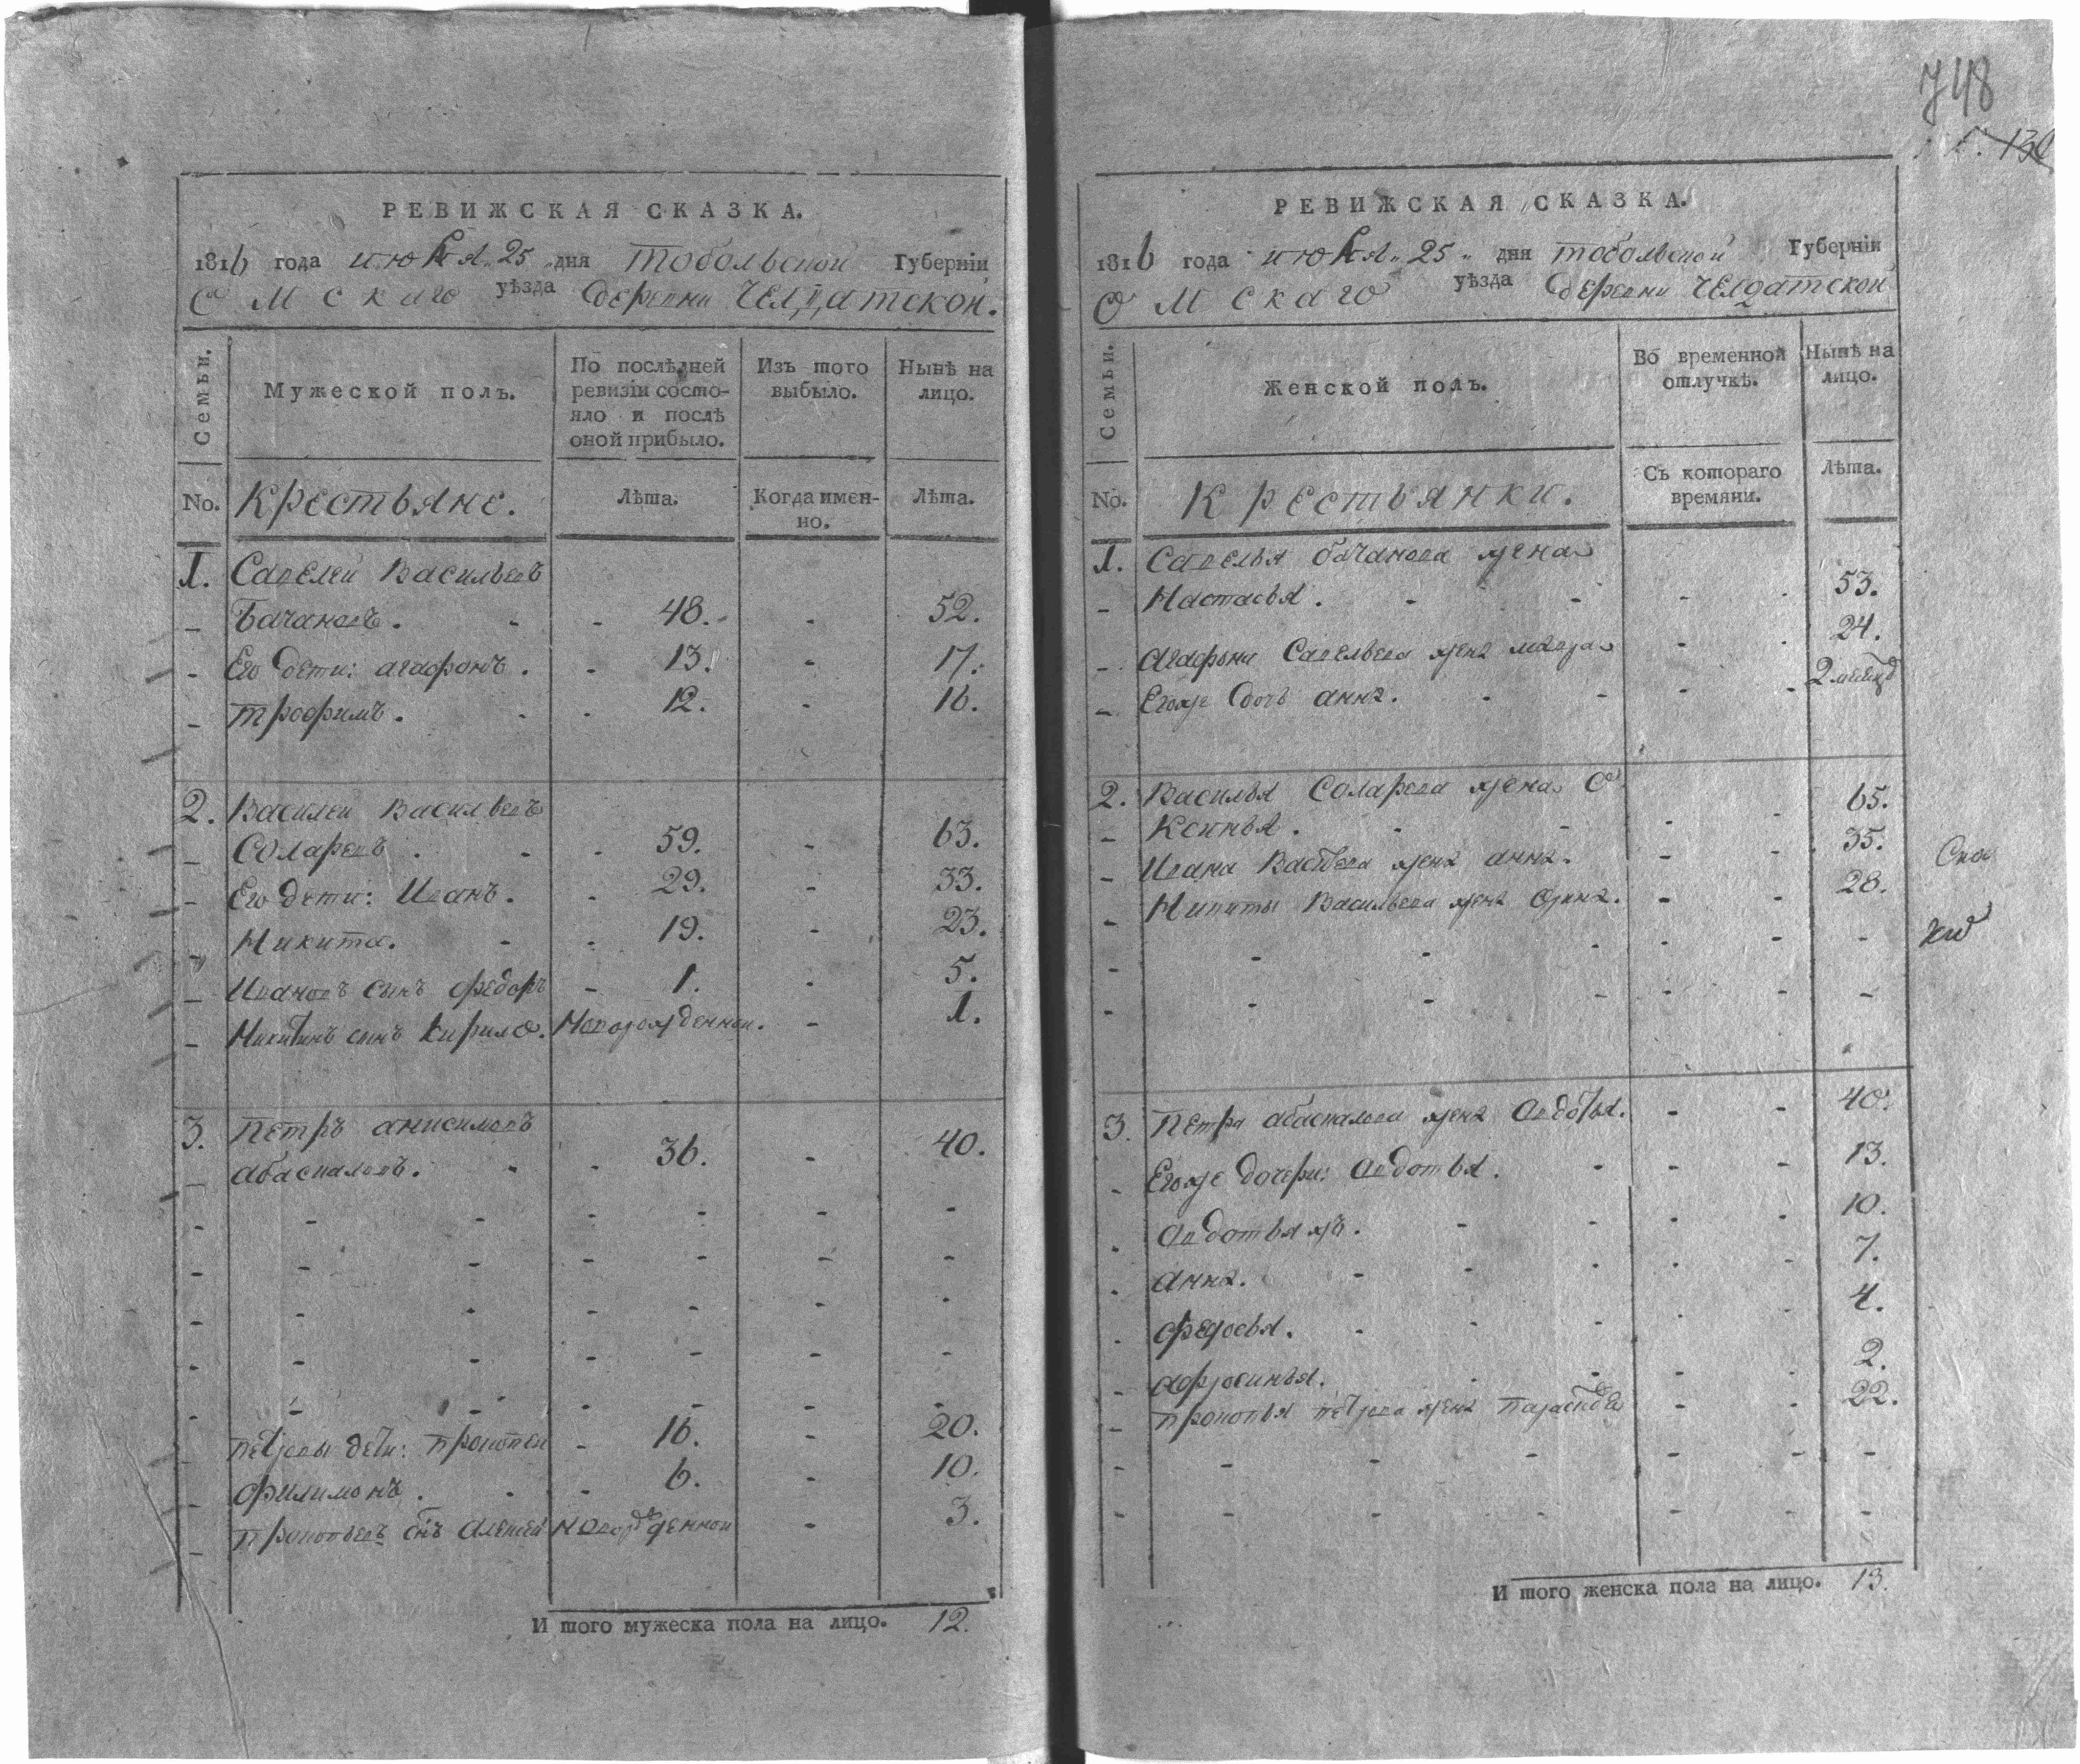 РЕВИЖСКАЯ СКАЗКА.
1816 года июня 25 дня Тобольской Губерніи
Омскаго уѣзда деревни Челдатской.
Семьи.
Мужеской полъ.
По послѣдней ревизіи состо-яло и послѣ оной прибыло.
Изъ того выбыло.
Нынѣ на лицо.
No. Крестьяне. Лѣта. Когда имен-но. Лѣта.
1. Савелей Васильевъ
Бачановъ. 48. - 52.
Его дети: агафонъ. 13. - 17.
Трофимъ. 12. - 16.
2. Василей Васильевъ
Соларевъ. 59. - 63.
Его дети: Иванъ. 29. - 33.
Никита. 19. - 23.
Ивановъ сынъ Федоръ - 1. - 5.
Никитинъ сынъ Кирило. Новорожденной. - 1.
3. Петръ анисимовъ
абаскаловъ. 36. - 40.
Петровы дети: Прокопей - 16. - 20.
Филимонъ. 6. - 10.
Прокопьевъ снъ Алексей Новорожденной - 3.
И того мужеска пола на лицо. 12.
748
РЕВИЖСКАЯ СКАЗКА.
1816 года июня 25 дня Тобольской Губерніи
Омскаго уѣзда деревни Челдатской
Семьи.
Женской полъ.
Во временной отлучкѣ.
Нынѣ на лицо.
No. Крестьянки. Съ котораго времяни. Лѣта.
1. Савелья бачанова жена
Настасья. - - 53.
Агафона Савельева жена - 24.
Егоже дочь анна. - -
2. Василья Соларева жена О
Ксинья. - - 65.
Ивана Васильева жена анна. - - 35.
Никиты Васильева жена - - 28.
3. Петра абаскалова жена Авдотья. - - 40.
Егоже дочери: Авдотья. - - 13.
Авдотья жъ. - - 10.
Анна. - - 7.
Федосья. - - 4.
Афросинья. - - 2.
Прокопья петрова жена Парасковья - - 22.
И того женска пола на лицо. 13.